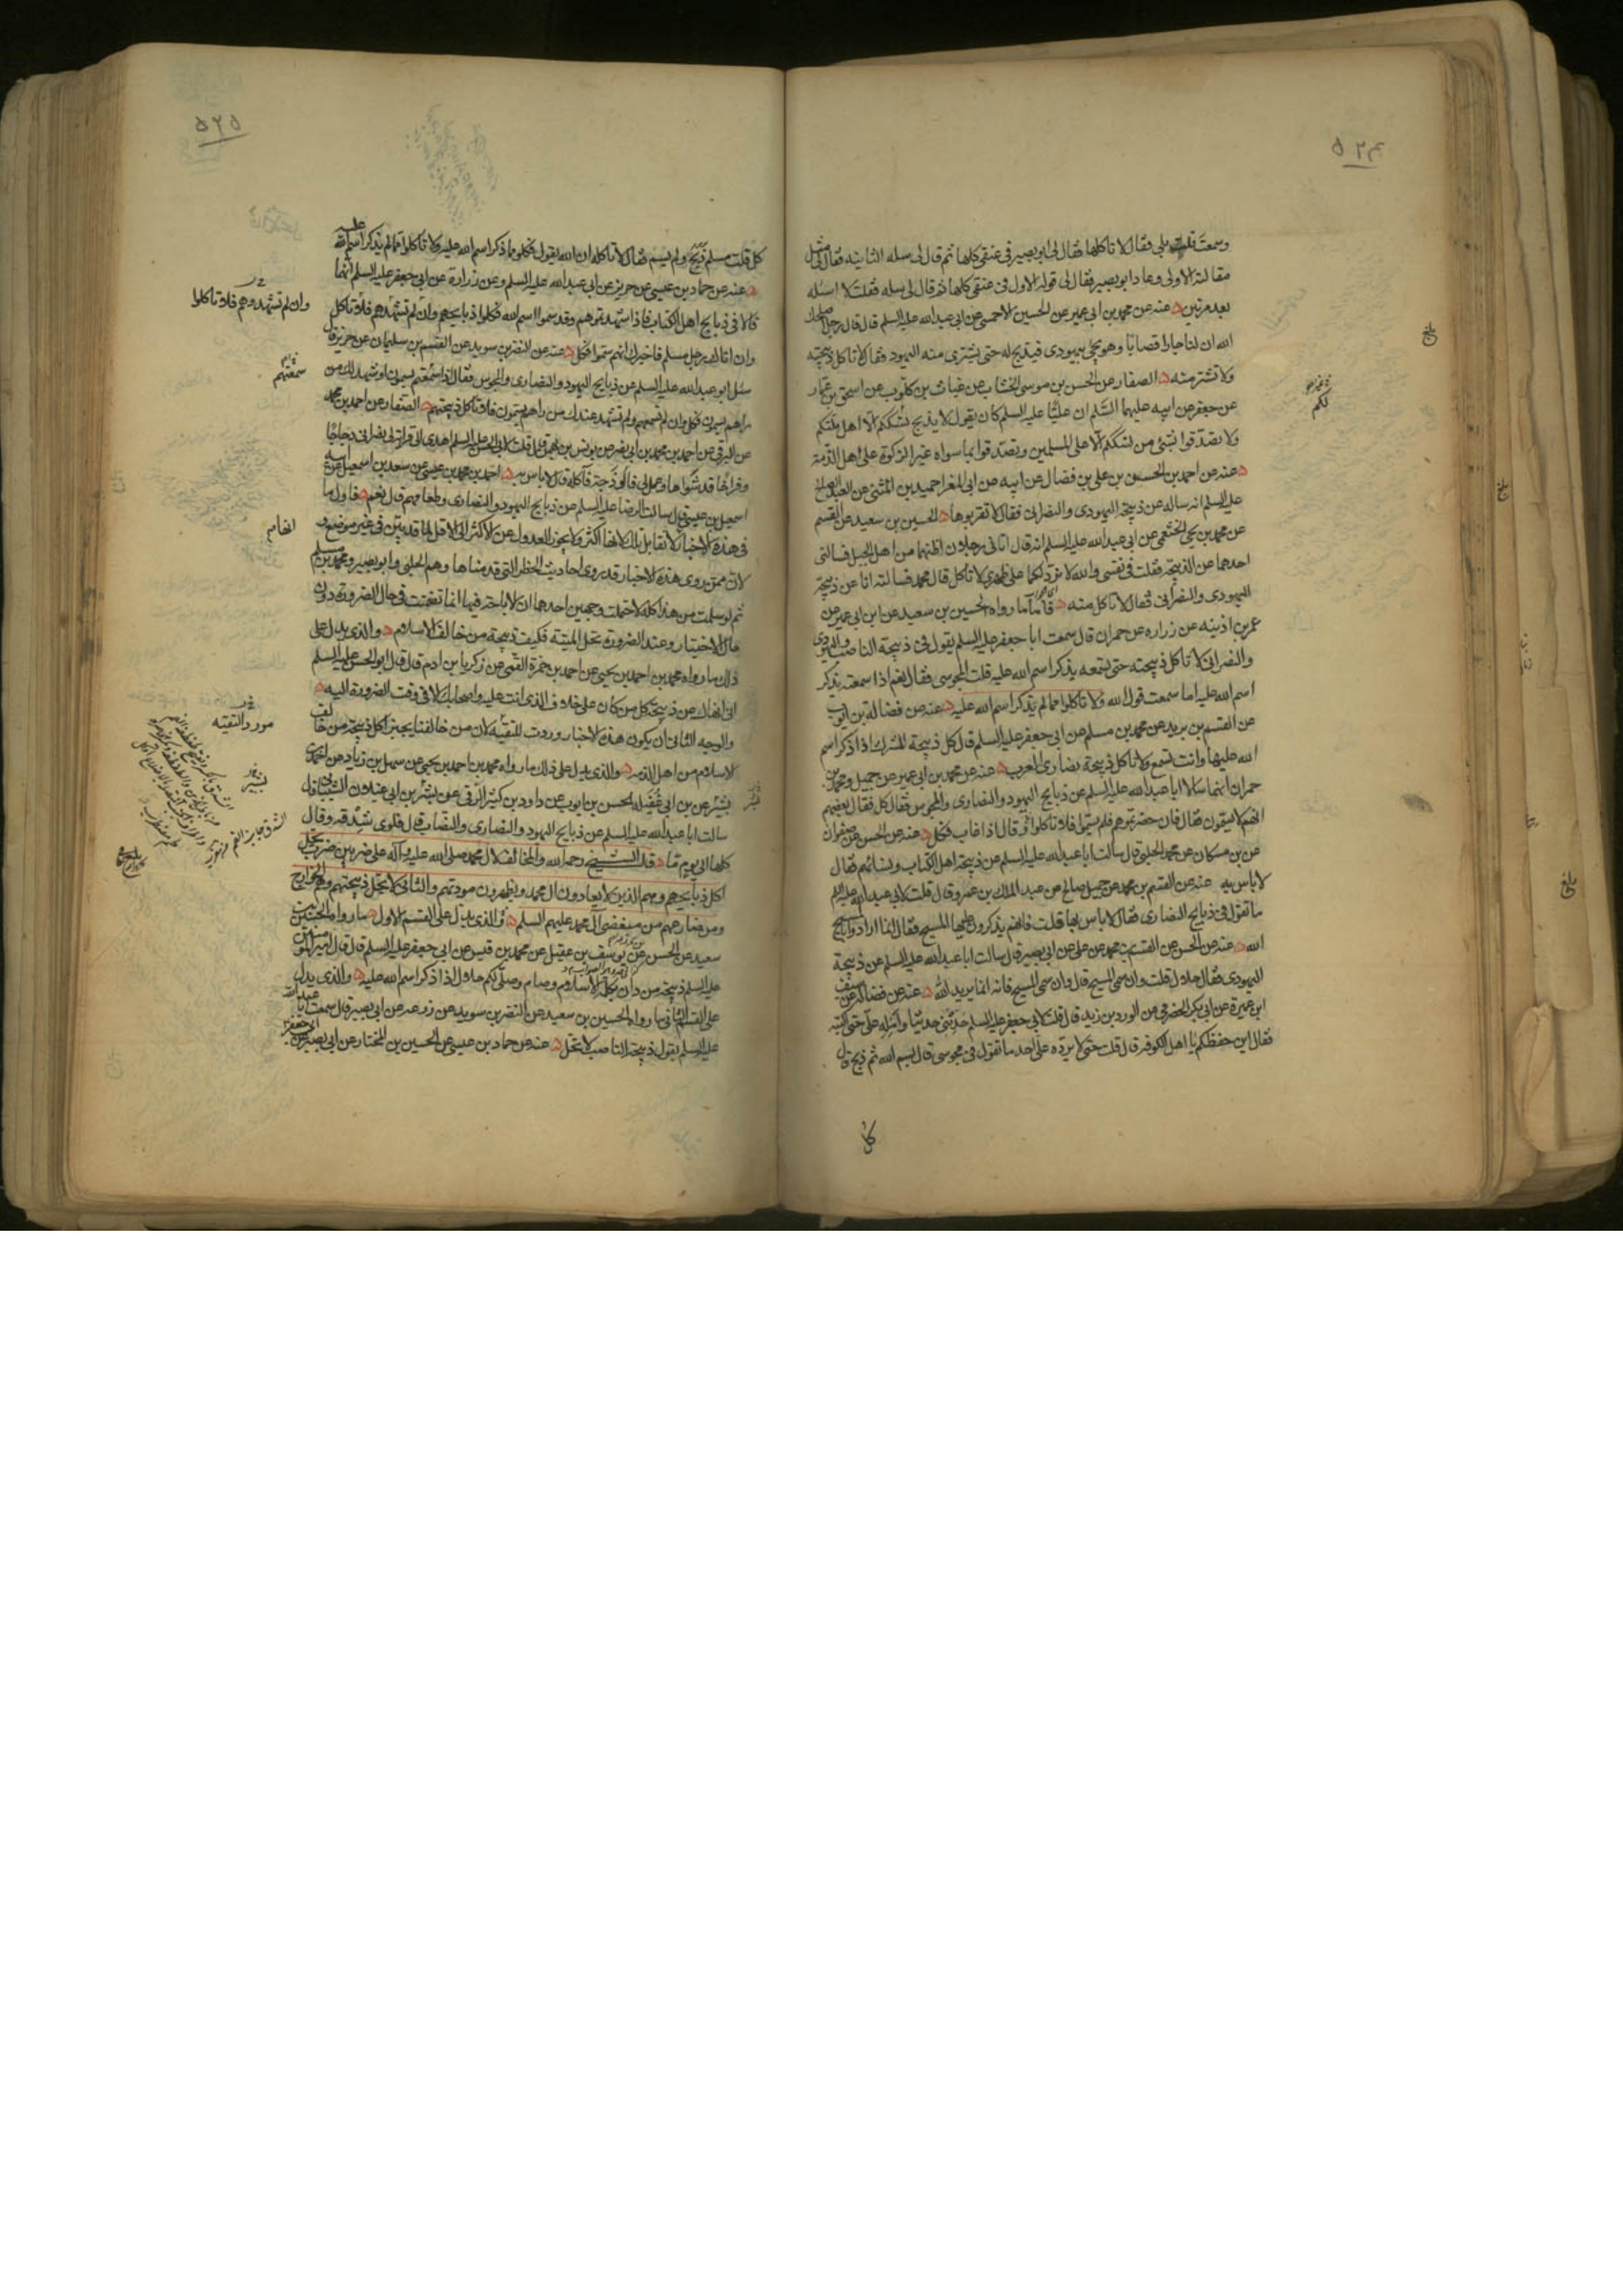 ۵۲۴
وسمعت قلت بلى فقال لا تاكلها فقال لى ابو بصير فى عنقى كلها ثم قال لى سله الثانيه فقال لى مثل
مقالته الاولى وعاد ابو بصير فقال لى قوله الاول فى عنقى كلها ثم قال لى سله فقلت لا اسئله
بعد مرتين عنه عن محمد بن ابى عمير عن الحسين الاحمسى عن ابى عبد الله عليه السلم قال قال رجل اصلحك
الله ان لنا جارا قصابا وهو يجئ بيهودى فيذبح له حتى يشترى منه اليهود فقال لا تاكل ذبيحته
ولا تشتر منه الصفار عن الحسن بن موسى الخشاب عن غياث بن كلوب عن اسحق بن عمار
عن جعفر عن ابيه عليهما السلم ان عليا عليه السلم كان يقول لا يذبح نسككم الا اهل ملتكم
ولا تصدقوا بشئ من نسككم الا على المسلمين وتصدقوا بما سواه غير الزكوة على اهل الذمة
عنه عن احمد بن الحسن بن على بن فضال عن ابيه عن ابى المغرا حميد بن المثنى عن العبد الصالح
عليه السلم انه ساله عن ذبيحة اليهودى والنصرانى فقال لا تقربوها الحسين بن سعيد عن القسم
عن محمد بن يحيى الخثعمى عن ابى عبد الله عليه السلم انه قال اتانى رجلان اظنهما من اهل الجبل فسالنى
احدهما عن الذبيحة فقلت فى نفسى والله لا نبرد لكما على ظهرى لا تاكل قال محمد فسالته انا عن ذبيحة
اليهودى والنصرانى فقال لا تاكل منه فاما ما رواه الحسين بن سعيد عن ابن ابى عمير عن
عمر بن اذينه عن زراره عن حمران قال سمعت ابا جعفر عليه السلم يقول فى ذبيحة الناصب واليهودى
والنصرانى لا تاكل ذبيحته حتى تسمعه يذكر اسم الله عليه قلت المجوسى فقال نعم اذا سمعته يذكر
اسم الله عليه اما سمعت قول الله ولا تاكلوا مما لم يذكر اسم الله عليه عنه عن فضالة بن ايوب
عن القسم بن بريد عن محمد بن مسلم عن ابى جعفر عليه السلم قال كل ذبيحة المشرك اذا ذكر اسم
الله عليها وانت تسمع ولا تاكل ذبيحة نصارى العرب عنه عن محمد بن ابى عمير عن جميل ومحمد بن
حمران انهما سالا ابا عبد الله عليه السلم عن ذبايح اليهود والنصارى والمجوس فقال كل فقال بعضهم
انهم لا يسمون فقال فان حضرتموهم فلم يسموا فلا تاكلوا وقال اذا غاب فكل عنه عن الحسن عن صفوان
عن بن مسكان عن محمد الحلبى قال سالت ابا عبد الله عليه السلم عن ذبيحة اهل الكتاب ونسائهم فقال
لا باس به عنه عن القسم بن محمد عن جميل صالح عن عبد الملك بن عمرو قال قلت لابى عبد الله عليه السلم
ما تقول فى ذبايح النصارى فقال لا باس بها قلت فانهم يذكرون عليها المسيح فقال انما ارادوا بالمسيح
الله عنه عن الحسن عن القسم بن محمد عن على عن ابى بصير قال سالت ابا عبد الله عليه السلم عن ذبيحة
اليهودى فقال حلال قلت وان سمى المسيح قال وان سمى المسيح فانه انما يريد الله عنه عن فضاله عن سيف
ابن عميرة عن ابى بكر الحضرمى عن الورد بن زيد قال قلت لابى جعفر عليه السلم حدثنى حديثا وامله على حتى اكتبه
فقال اين حفظكم يا اهل الكوفه قال قلت حتى لا يرده على احد ما تقول فى مجوسى قال بسم الله ثم ذبح قال
كل
لكم
بلغ
بلغ
بلغ
۵۲۵
كل قلت مسلم ذبح ولم يسم فقال لا تاكله ان الله يقول فكلوا مما ذكر اسم الله عليه ولا تاكلوا مما لم يذكر اسم الله عليه
عنه عن حماد بن عيسى عن حريز عن ابى عبد الله عليه السلم وعن زرارة عن ابى جعفر عليه السلم انهما
قالا فى ذبايح اهل الكتاب فاذا شهدتموهم وقد سموا اسم الله فكلوا ذبايحهم وان لم تشهدهم فلا تاكل
وان اتاك رجل مسلم فاخبرك انهم سموا فكل عنه عن النضر بن سويد عن القسم بن سليمان عن حريز قال
سئل ابو عبد الله عليه السلم عن ذبايح اليهود والنصارى والمجوس فقال اذا سمعتم يسمون او شهد لك من
راهم يسمون فكل وان لم تسمعهم ولم يشهد عندك من راهم يسمون فلا تاكل ذبيحتهم الصفار عن احمد بن محمد
عن البرقى عن احمد بن محمد بن ابى نصر عن يونس بن بهمن قال قلت لابى الحسن عليه السلم اهدى الى قرابة لى نصرانى دجاجا
وفراخا قد شواها وعمل لى فالوذجة فاكله قال لا باس به احمد بن محمد بن عيسى عن سعد بن اسمعيل عن ابيه
اسمعيل بن عيسى قال سالت الرضا عليه السلم عن ذبايح اليهود والنصارى وطعامهم قال نعم فاول ما
فى هذه الاخبار لا تقابل تلك لانها اكثر ولا يجوز العدول عن الاكثر الى الاقل لما قد بين فى غير موضع و
لان ممن روى هذه الاخبار قد روى احاديث الحظر التى قدمناها وهم الحلبى وابو بصير ومحمد بن مسلم
ثم لو سلمت من هذا كله لاحتملت وجهين احدهما ان الاباحة فيها انما تضمنت فى حال الضرورة دون
حال الاختيار وعند الضرورة تحل الميتة فكيف ذبيحة من خالف الاسلام والذى يدل على
ذلك ما رواه محمد بن احمد بن يحيى عن احمد بن حمزة القمى عن زكريا بن ادم قال قال ابو الحسن عليه السلم
انى انهاك عن ذبيحة كل من كان على خلاف الذى انت عليه واصحابك الا فى وقت الضرورة اليه
والوجه الثانى ان يكون هذه الاخبار وردت للتقية لان من خالفنا يجيز اكل ذبيحة من خالف
الاسلام من اهل الذمة والذى يدل على ذلك ما رواه محمد بن احمد بن يحيى عن سهل بن زياد عن احمد بن
بشير عن بن ابى غفيلة الحسن بن ايوب عن داود بن كثير الرقى عن بشر بن ابى غيلان الشيبانى قال
سالت ابا عبد الله عليه السلم عن ذبايح اليهود والنصارى والنصاب قال فلوى شدقه وقال
كلها الى يوم ما قال الشيخ رحمه الله والمخالف لال محمد صلى الله عليه واله على ضربين ضرب تحل
اكل ذبايحهم وهم الذين لا يعادون ال محمد ويظهرون مودتهم والثانى لا تحل ذبيحتهم وهم الخوارج
ومن ضارعهم من مبغضى ال محمد عليهم السلم فالذى يدل على القسم الاول ما رواه الحسين بن
سعيد عن الحسن عن يوسف بن عقيل عن محمد بن قيس عن ابى جعفر عليه السلم قال قال امير المومنين
عليه السلم ذبيحة من دان بكلمة الاسلام وصام وصلى لكم حلال اذا ذكر اسم الله عليه والذى يدل
على القسم الثانى ما رواه الحسين بن سعيد عن النضر بن سويد عن زرعه عن ابى بصير قال سمعت ابا عبد الله
عليه السلم يقول ذبيحة الناصب لا تحل عنه عن حماد بن عيسى عن الحسين بن المختار عن ابى بصير عن ابى جعفر
وان لم تشهدهم فلا تاكلوا
سمعتهم
مورد التقية
بشير